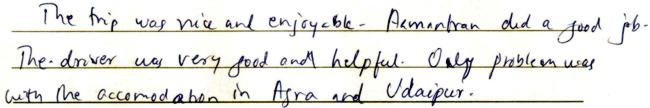 The trip was nice and enjoyable. Aamantran did a good job.
The driver was very good and helpful. Only problem was
with the accomodation in Agra and Udaipur.